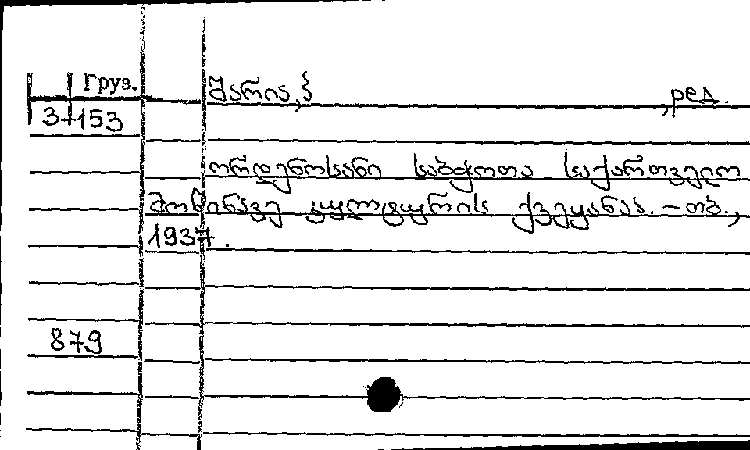 Груз.
შარია, პ. , ред.
3-153
ორდენოსანი საბჭოთა საქართველო
მოწინავე კულტურის ქვეყანაა. – თბ.,
1937.
879